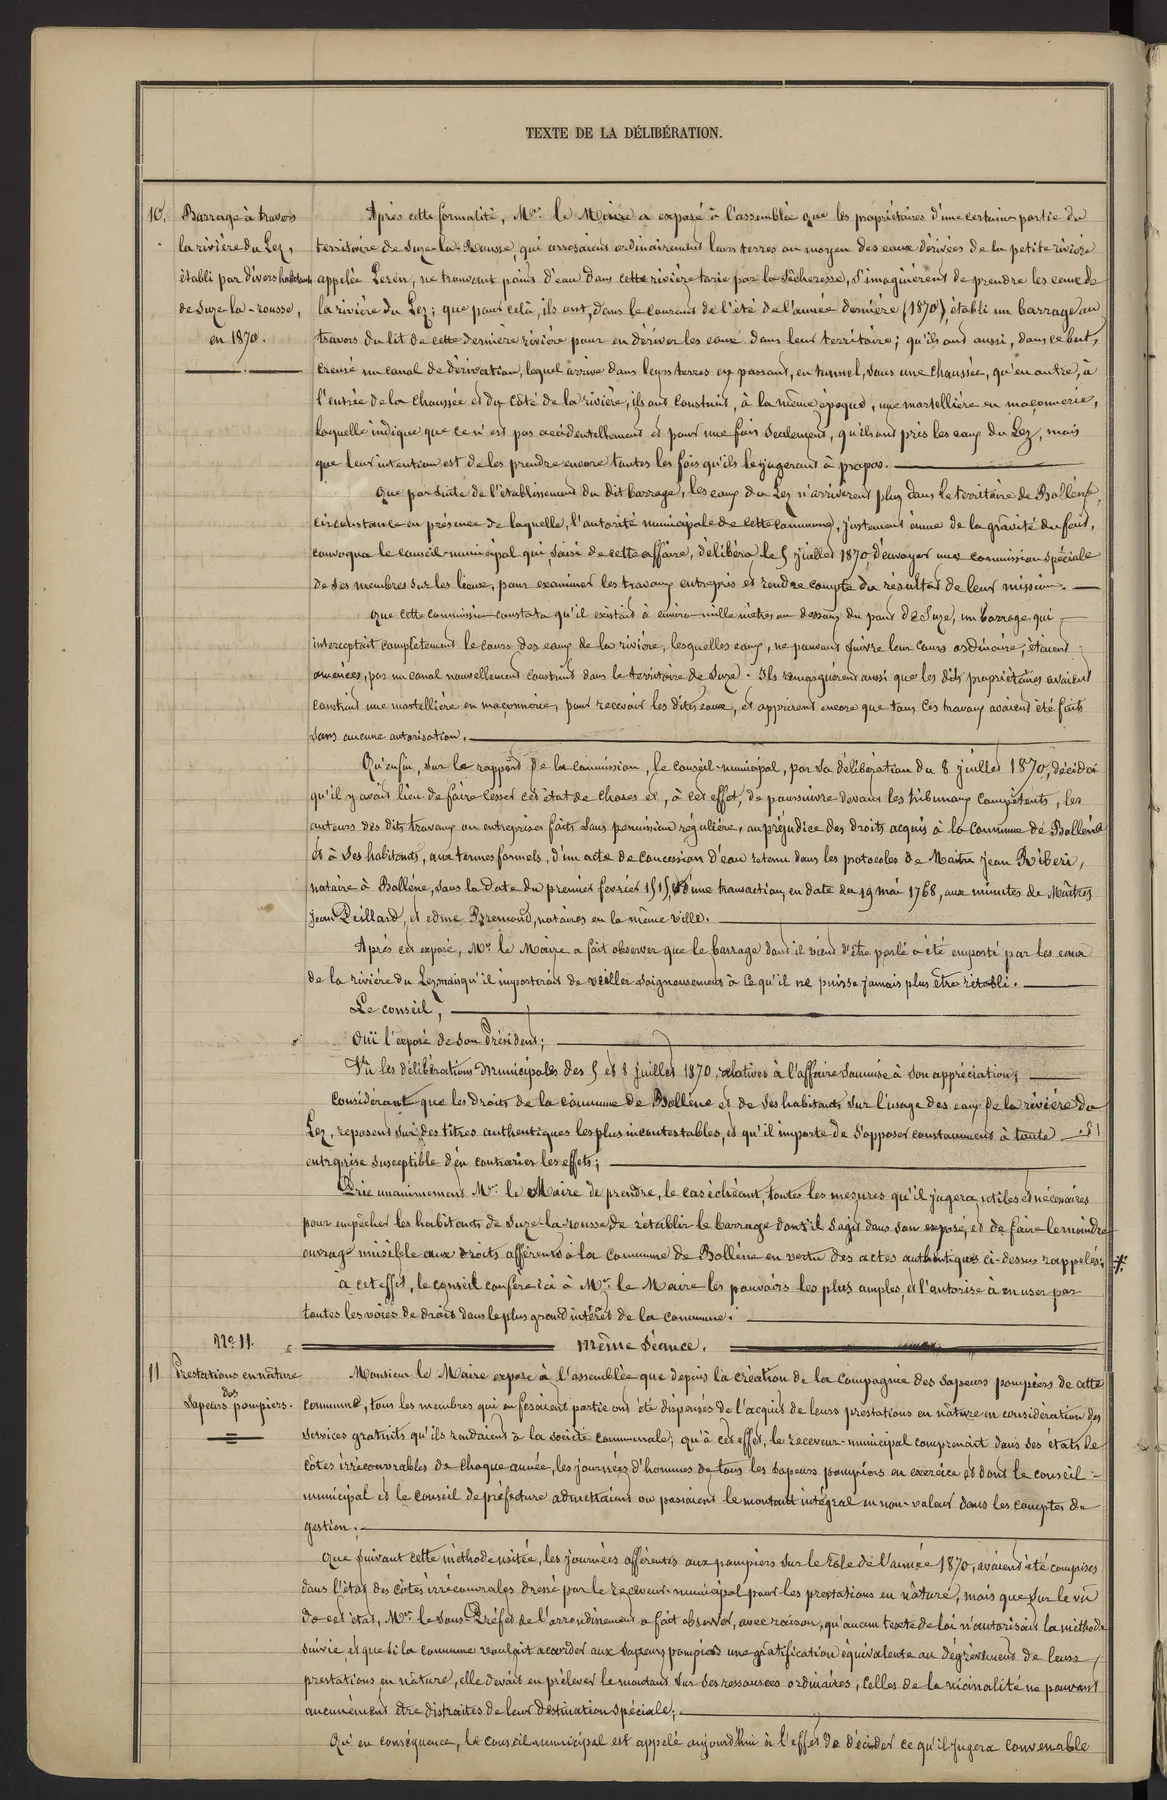 TEXTE DE LA DÉLIBÉRATION.
10. Barrage à travers
la rivière du Lez,
établi par divers habitants
de Suze-la-rousse,
en 1870.
Après cette formalité, Mr. le Maire a exposé à l'assemblée que les propriétaires d'une certaine partie du
territoire de Suze-la-Rousse, qui arrosaient ordinairement leurs terres au moyen des eaux dérivées de la petite rivière
appelée Lerein, ne trouvant point d'eau dans cette rivière tarie par la sécheresse, s'imaginèrent de prendre les eaux de
la rivière du Lez; que pour celà, ils ont, dans le courant de l'été de l'année dernière (1870), établi un barrage au
travers du lit de cette dernière rivière pour en dériver les eaux dans leur territoire; qu'ils ont aussi, dans ce but,
creusé un canal de dérivation, lequel arrive dans leurs terres en passant, en tunnel, sous une chaussée, qu'en outre, à
l'entrée de la chaussée et du côté de la rivière, ils ont construit, à la même époque, une martellière en maçonnerie,
laquelle indique que ce n'est pas accidentellement et pour une fois seulement, qu'ils ont pris les eaux du Lez, mais
que leur intention est de les prendre encore toutes les fois qu'ils le jugeront à propos.
Que par suite de l'établissement du dit barrage, les eaux du Lez n'arrivèrent plus dans le territoire de Bollène,
circonstance en présence de laquelle, l'autorité municipale de cette commune, justement émue de la gravité du fait,
convoqua le conseil-municipal qui, saisi de cette affaire, délibéra le 5 juillet 1870, d'envoyer une commission spéciale
de ses membres sur les lieux, pour examiner les travaux entrepris et rendre compte du résultat de leur mission.
que cette commission constata qu'il existait à environ mille mètres au dessous du pont de Suze, un barrage qui
interceptait complètement le cours des eaux de la rivière, lesquelles eaux, ne pouvant suivre leur cours ordinaire, étaient
amenées, par un canal nouvellement construit dans le territoire de Suze. Ils remarquèrent aussi que les dits propriétaires avaient
construit une martellière en maçonnerie, pour recevoir les dites eaux, et apprirent encore que tous ces travaux avaient été faits
sans aucune autorisation.
Qu'enfin, sur le rapport de la commission, le conseil-municipal, par sa délibération du 8 juillet 1870, décida
qu'il y avait lieu de faire cesser cet état de choses et, à cet effet, de poursuivre devant les tribunaux compétents, les
auteurs des dits travaux ou entreprises faits sans permission régulière, au préjudice des droits acquis à la commune de Bollène
et à ses habitants, aux termes formels, d'un acte de concession d'eau retenu dans les protocoles de Maître Jean Riberi,
notaire à Bollène, sous la date du premier février 1515, & d'une transaction, en date du 19 mai 1768, aux minutes de Maîtres
Jean Peillard, et edme Bremond, notaires en la même ville.
Après cet exposé, Mr. le Maire a fait observer que le barrage dont il vient d'être parlé a été emporté par les eaux
de la rivière du Lez, mais qu'il importerait de veiller soigneusement à ce qu'il ne puisse jamais plus être rétabli.
Le conseil,
Ouï l'exposé de son Président;
Vu les délibérations municipales des 5 et 8 juillet 1870, relatives à l'affaire soumise à son appréciation;
Considérant que les droits de la commune de Bollène et de ses habitants sur l'usage des eaux de la rivière du
Lez, reposent sur des titres authentiques les plus incontestables, et qu'il importe de s'opposer constamment à toute
entreprise susceptible d'en contrarier les effets;
Prie unanimement Mr. le Maire de prendre, le cas échéant, toutes les mesures qu'il jugera utiles et nécessaires
pour empêcher les habitants de Suze-la-rousse de rétablir le barrage dont il s'agit dans son exposé, et de faire le moindre
ouvrage nuisible aux droits afférents à la commune de Bollène en vertu des actes authentiques ci-dessus rappelés;
à cet effet, le conseil confère ici à Mr. le Maire les pouvoirs les plus amples, et l'autorise à en user par
toutes les voies de droit dans le plus grand intérêt de la commune.
No 11. même séance.
11 Prestations en nature
des
Sapeurs pompiers.
Monsieur le Maire expose à l'assemblée que depuis la création de la compagnie des sapeurs pompiers de cette
commune, tous les membres qui en fesaient partie ont été dispensés de l'acquit de leurs prestations en nature en considération des
services gratuits qu'ils rendaient à la société communale; qu'à cet effet, le receveur-municipal comprenait dans ses états de
côtes irrécouvrables de chaque année, les journées d'hommes de tous les sapeurs pompiers en exercice et dont le conseil-
municipal et le conseil de préfecture admettaient ou passaient le montant intégral en non-valeur dans les comptes de
gestion.
Que suivant cette méthode usitée, les journées afférentes aux pompiers sur le rôle de l'année 1870, avaient été comprises
dans l'état des côtes irrécouvrables dressé par le receveur-municipal pour les prestations en nature, mais que sur le vu
de cet état, Mr. le Sous-Préfet de l'arrondissement a fait observer, avec raison, qu'aucun texte de loi n'autorisait la méthode
suivie, et que si la commune voulait accorder aux sapeurs pompiers une gratification équivalente au dégrèvement de leurs
prestations en nature, elle devait en prélever le montant sur ses ressources ordinaires, celles de la vicinalité ne pouvant
aucunement être distraites de leur destination spéciale;
Qu'en conséquence, le conseil municipal est appelé aujourd'hui à l'effet de décider ce qu'il jugera convenable